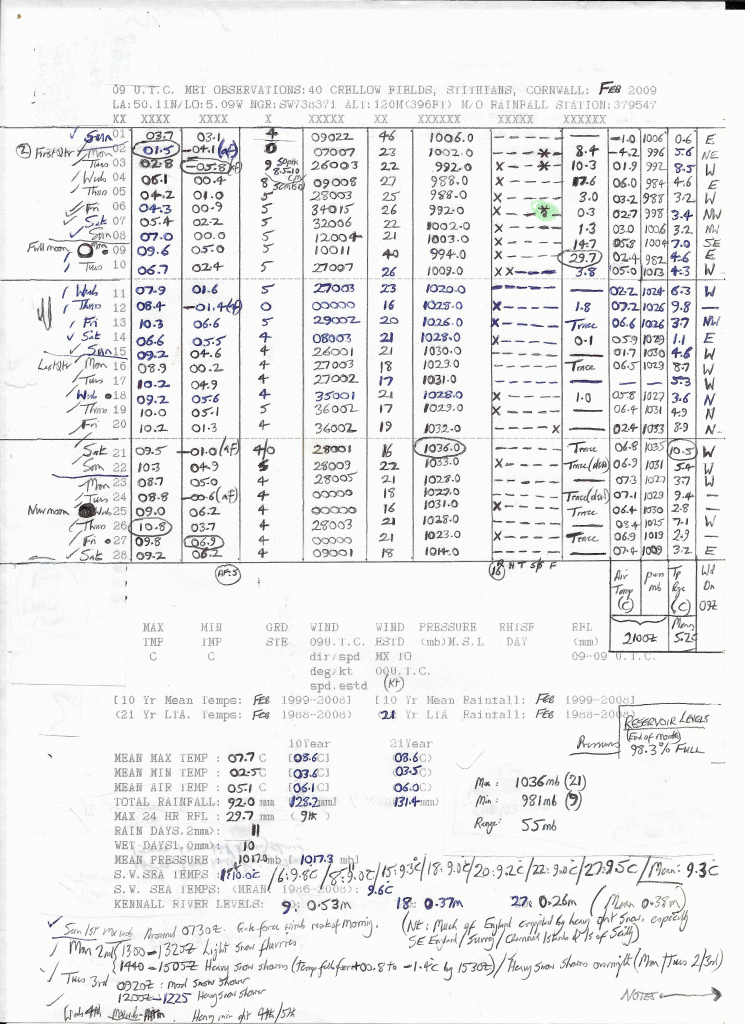 09 U.T.C. MET OBSERVATIONS:40 CRELLOW FIELDS, STITHIANS, CORNWALL: FEB 2009
LA:50.11N/LO:5.09W NGR:SW738371 ALT:120M(396FT) M/O RAINFALL STATION:379547
XX XXXXX XXXX X XXXXX XX XXXXXX XXXXX XXXXXX
Sun 01 03.7 03.1 4 09022 46 1006.0 ------ — -1.0 1006 0.6 E
② First Qtr Mon 02 01.5 -04.1(af) 0 07007 23 1002.0 ----*- 8.4 -4.2 996 5.6 NE
Tues 03 02.8 -05.8(af) 9 26003 22 992.0 X---*-- 10.3 01.9 992 8.5 W
Weds 04 06.1 00.4 8 09008 27 988.0 X----- 17.6 06.0 984 4.6 E
Thu 05 04.2 01.0 5 28003 25 988.0 X----- 3.0 03.2 988 3.2 W
Fri 06 04.3 00.9 5 34015 26 992.0 X---*-- 0.3 02.7 998 3.4 NW
Sat 07 05.4 02.2 5 32006 22 1002.0 X----- 1.3 03.0 1006 3.2 NW
Sun 08 07.0 00.0 5 12004 21 1003.0 X----- 14.7 05.8 1004 7.0 SE
Full moon Mon 09 09.6 05.0 5 10011 40 994.0 X----- 29.7 02.4 982 4.6 E
Tues 10 06.7 02.4 5 27007 26 1009.0 XX---- 3.8 05.0 1013 4.3 W
Weds 11 07.9 01.6 5 27003 23 1020.0 ------ — 02.2 1024 6.3 W
Thurs 12 08.4 -01.4(af) 0 00000 16 1028.0 X----- 1.8 07.2 1026 9.8 —
Fri 13 10.3 06.6 5 29002 20 1026.0 X----- Trace 06.6 1026 3.7 NW
Sat 14 06.6 05.5 4 08003 21 1028.0 X----- 0.1 05.9 1029 1.1 E
Sun 15 09.2 04.6 4 26001 21 1030.0 ------ — 01.7 1030 4.6 W
Last Qtr Mon 16 08.9 00.2 4 27003 18 1029.0 ------ Trace 06.5 1029 8.7 W
Tues 17 10.2 04.9 4 27002 17 1031.0 ------ — — 5.3 W
Weds 18 09.2 05.6 4 35001 21 1028.0 X----- 1.0 05.8 1027 3.6 N
Thurs 19 10.0 05.1 5 36002 17 1029.0 X----- — 06.4 1031 4.9 N
Fri 20 10.2 01.3 4 36002 19 1032.0 -----X — 02.4 1033 8.9 N
Sat 21 09.5 -01.0(af) 4/0 28001 16 1036.0 ------ Trace 06.8 1035 10.5 W
Sun 22 10.3 04.9 5 28009 22 1033.0 X----- Trace(dew) 06.9 1031 5.4 W
Mon 23 08.7 05.0 4 28005 21 1028.0 ------ — 07.3 1027 3.7 W
Tues 24 08.8 -00.6(af) 4 00000 18 1027.0 ------ Trace(dew) 07.1 1029 9.4 —
New moon Weds 25 09.0 06.2 4 00000 16 1031.0 X----- Trace 06.4 1030 2.8 —
Thurs 26 10.8 03.7 4 28003 21 1028.0 ------ — 08.4 1025 7.1 W
Fri 27 09.8 06.9 4 00000 21 1023.0 ------ Trace 06.9 1019 2.9 —
Sat 28 09.2 06.2 4 09001 18 1014.0 ------ — 07.4 1009 3.2 E
AF:5 16 R H T S/S F
Air Temp (C) pres mb Tp Rge (C) Wd Dn 09Z
2100Z Mean 5.2C
MAX MIN GRD WIND WIND PRESSURE RHTSF RFL
TMP TMP STE 09U.T.C. ESTD (mb)M.S.L DAY (mm)
C C dir/spd MX 10 09-09 U.T.C.
deg/kt 00U.T.C.
spd.estd (Kt)
[10 Yr Mean Temps: FEB 1999-2008] [10 Yr Mean Rainfall: FEB 1999-2008]
(21 Yr LTA. Temps: FEB 1988-2008) (21 Yr LTA Rainfall: FEB 1988-2008)
RESERVOIR LEVELS
(End of Month)
98.3% FULL
10Year 21Year
Pressures
MEAN MAX TEMP : 07.7 C [08.6C] (08.6C)
MEAN MIN TEMP : 02.5 C [03.6C] (03.5C)
MEAN AIR TEMP : 05.1 C [06.1C] (06.0C)
TOTAL RAINFALL: 92.0 mm [128.2mm] (131.4mm)
MAX 24 HR RFL : 29.7 mm (9th)
Max: 1036mb (21)
Min: 981mb (9)
Range: 55mb
RAIN DAYS.2mm): 11
WET DAYS1.0mm): 10
MEAN PRESSURE : 1017.0 mb [1017.3 mb]
S.W.SEA TEMPS : 1/10.0°C /6:9.8C/ 8:9.0°C/15:9.3°C/18:9.0°C/20:9.2C/22:9.0°C/27:9.5C/Mean: 9.3°C
S.W. SEA TEMPS: (MEAN 1986-2008): 9.6C
KENNALL RIVER LEVELS: 9: 0.53m 18: 0.37m 27: 0.26m (Mean 0.38m)
Sun 1st Around 0730Z. Gale force winds rest of Morning.
(NB: Much of England crippled by heavy snow, especially
SE England / Surrey / Channel Islands & Is of Scilly)
Mon 2nd (1300-1320Z Light snow flurries
1440-1505Z Heavy snow showers (Temp fell from +00.8 to -1.4°C by 1530Z) / Heavy snow showers overnight (Mon/Tues 2/3rd)
Tues 3rd 0920Z: Mod snow shower
1200Z-1225 Heavy snow shower
Weds 4th Heavy 4th/5th
NOTES →